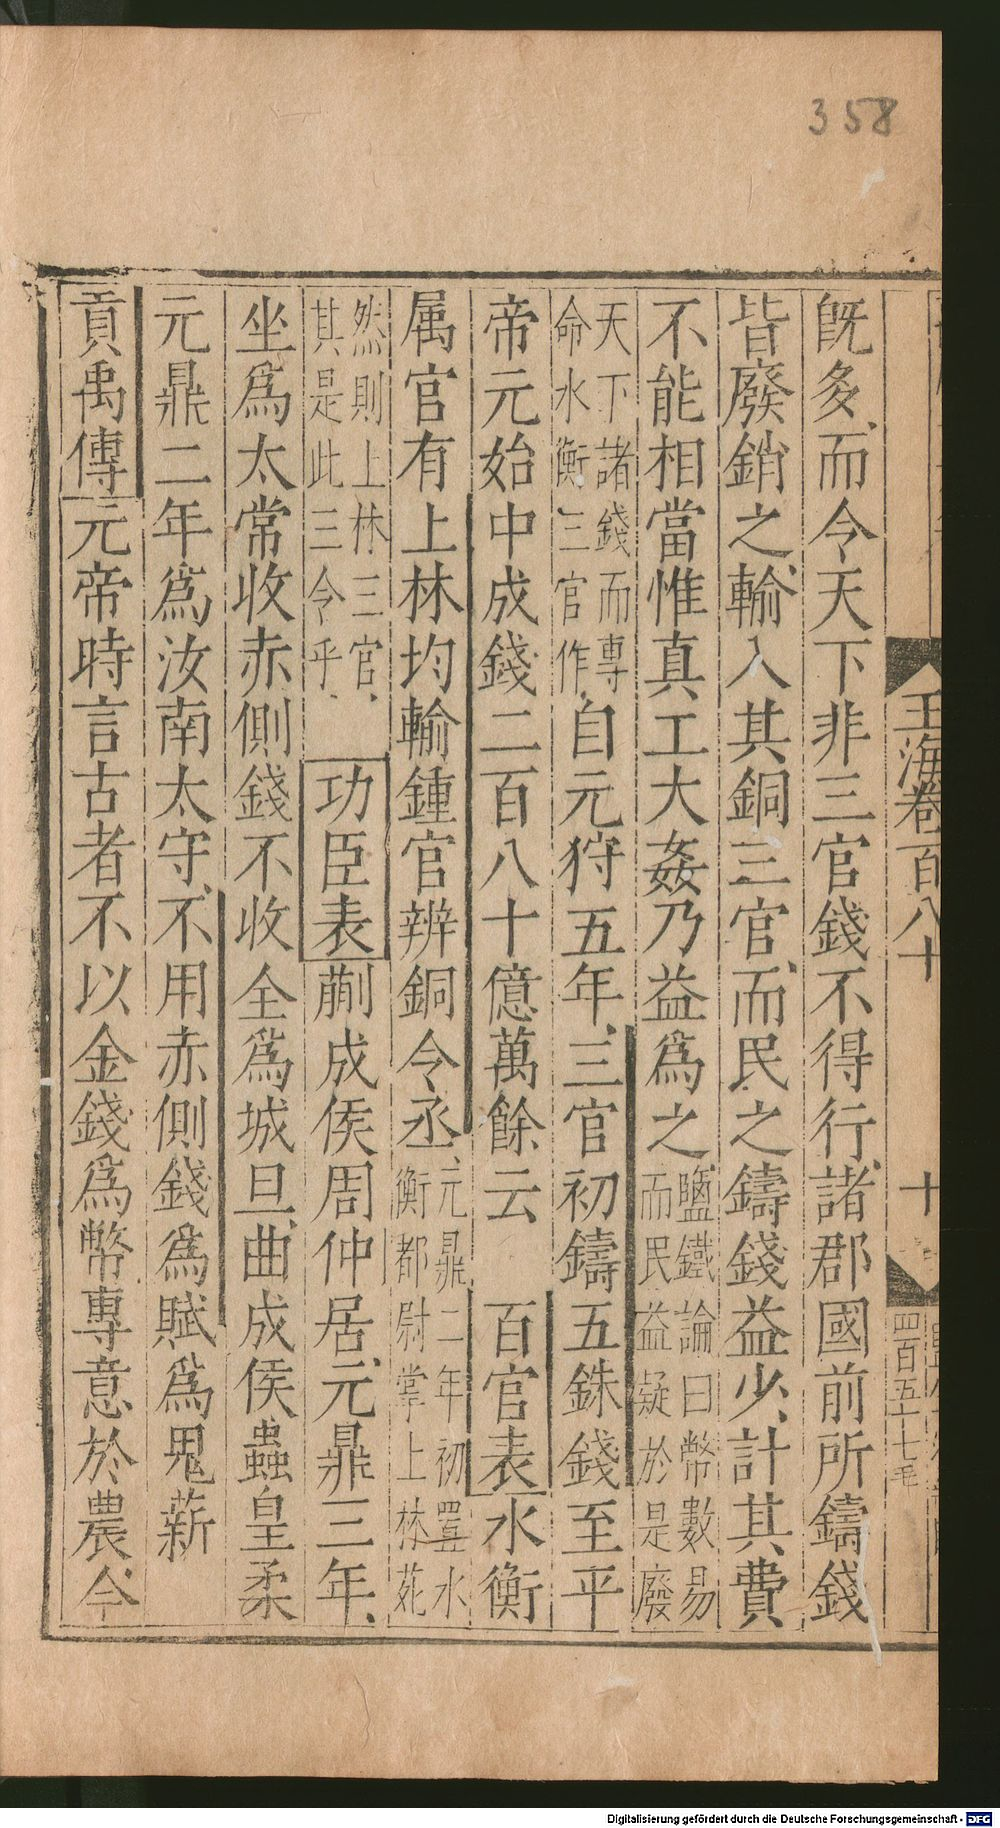 358
玉海卷百八十
十
四百五十七毛
既多、而令天下非三官錢不得行、諸郡國前所鑄錢
皆廢銷之、輸入其銅三官、而民之鑄錢益少、計其費
不能相當、惟真工大姦乃益爲之、鹽鐵論曰幣數易
而民益疑於是廢
天下諸錢而專
命水衡三官作、自元狩五年、三官初鑄五銖錢至平
帝元始中成錢二百八十億萬餘云 百官表水衡
属官有上林均輸鍾官辨銅令丞、元鼎二年初置水
衡都尉掌上林苑
然則上林三官、
其是此三令乎、 功臣表蒯成侯周仲居、元鼎三年、
坐爲太常收赤側錢不收全爲城旦、曲成侯蟲皇柔
元鼎二年爲汝南太守、不用赤側錢爲賦爲鬼薪
貢禹傳元帝時言古者不以金錢爲幣專意於農、今
Digitalisierung gefördert durch die Deutsche Forschungsgemeinschaft - DFG